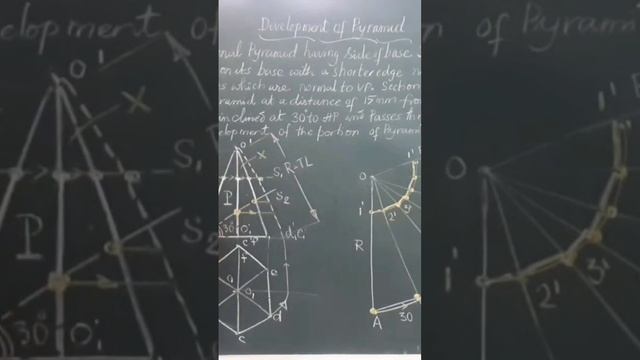 Development of Pyramid
nal Pyramid having side of base
on its base with a shorter edge
s which are normal to VP. Section
ramid at a distance of 15mm from
inclined at 30° to HP and passes
lopment of the portion of Pyramid
o'
x
S1
R-TL
P
S2
30° o'1
d'1 c'1
c'
f
e
a
o1
d
c
O
1'
2'
3'
1'
R
A
30